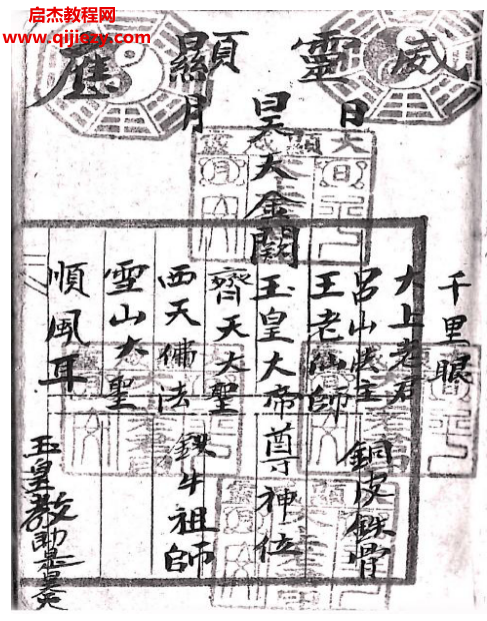 启杰教程网
www.qijiezy.com
威靈顯應
日
月
千里眼
大上老君
呂山法主
銅皮鉄骨
王老仙師
昊天金闕玉皇大帝尊神位
齊天大聖
西天佛法
鉄牛祖師
雪山大聖
順風耳
玉皇教